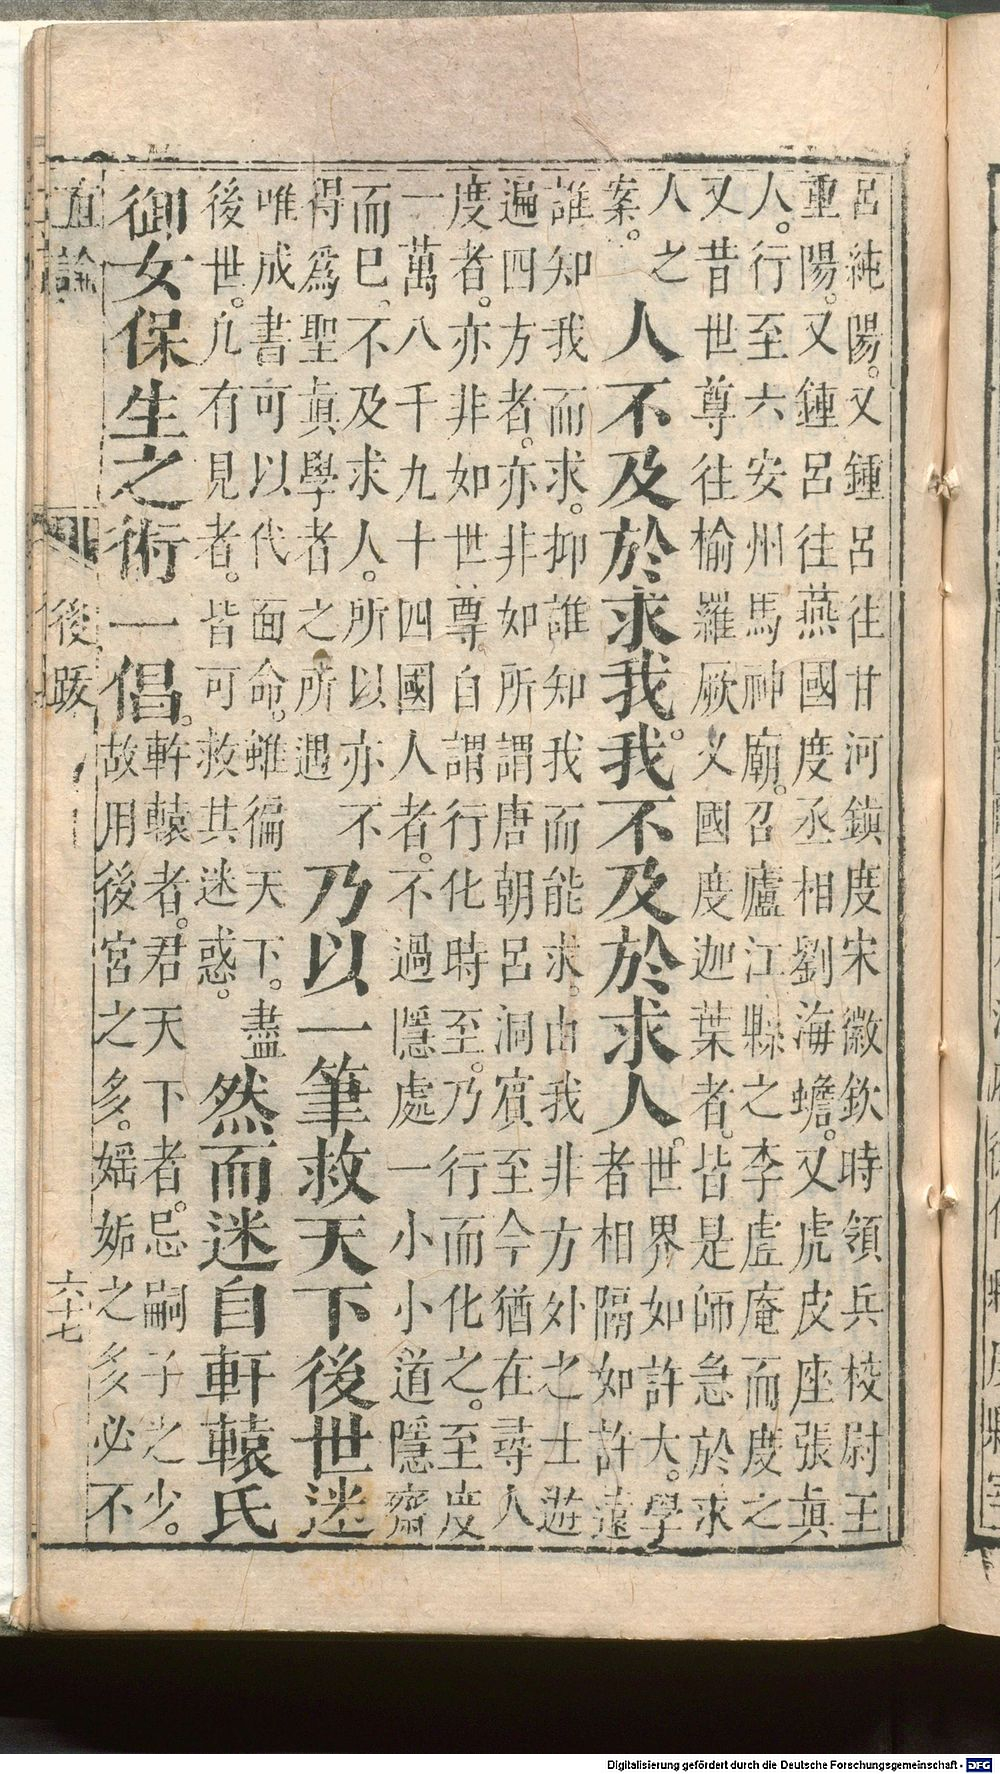 呂純陽。又鍾呂往甘河鎮度宋徽欽時領兵校尉王
重陽。又鍾呂往燕國度丞相劉海蟾。又虎皮座張眞
人。行至六安州馬神廟。召廬江縣之李虛庵而度之
又昔世尊往榆羅厥叉國度迦葉者。皆是師急於求
人之
案。
人不及於求我。我不及於求人。
世界如許大。學
者相隔如許遠
誰知我而求。抑誰知我而能求。由我非方外之士遊
遍四方者。亦非如所謂唐朝呂洞賓至今猶在尋人
度者。亦非如世尊自謂行化時至。乃行而化之。至度
一萬八千九十四國人者。不過隱處一小小道隱齋
而已。不及求人。所以亦不
得爲聖眞學者之所遇
乃以一筆救天下後世迷
唯成書可以代面命。雖徧天下。盡
後世。凡有見者。皆可救其迷惑。
然而迷自軒轅氏
御女保生之術一倡。
軒轅者。君天下者。忌嗣子之少。
故用後宮之多。婬姤之多必不
直論
後跋
六十七
Digitalisierung gefördert durch die Deutsche Forschungsgemeinschaft - DFG